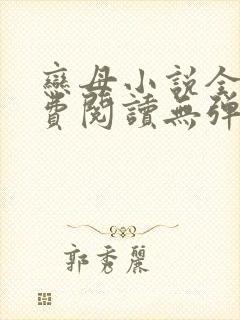 戀母小說全
費閱讀無彈
郭秀麗